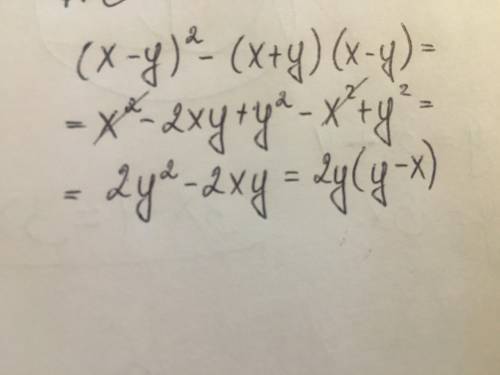 (x-y)² - (x+y)(x-y) =
= x² - 2xy + y² - x² + y² =
= 2y² - 2xy = 2y(y-x)